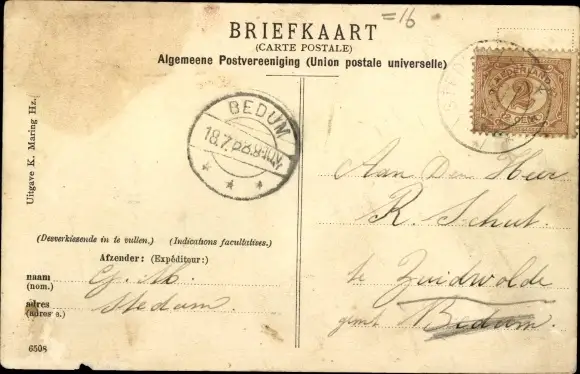 =16
BRIEFKAART
(CARTE POSTALE)
Algemeene Postvereeniging (Union postale universelle)
NEDERLAND
2
CENT
BEDUM
18.7
8-10V
STEDUM
Uitgave K. Maring Hz.
Aan Den Heer
R. Schut.
te Zuidwolde
gemt Bedum.
(Desverkiezende in te vullen.) (Indications facultatives.)
Afzender: (Expéditeur:)
naam
(nom.)
adres
(adres e.)
Stedum.
6508